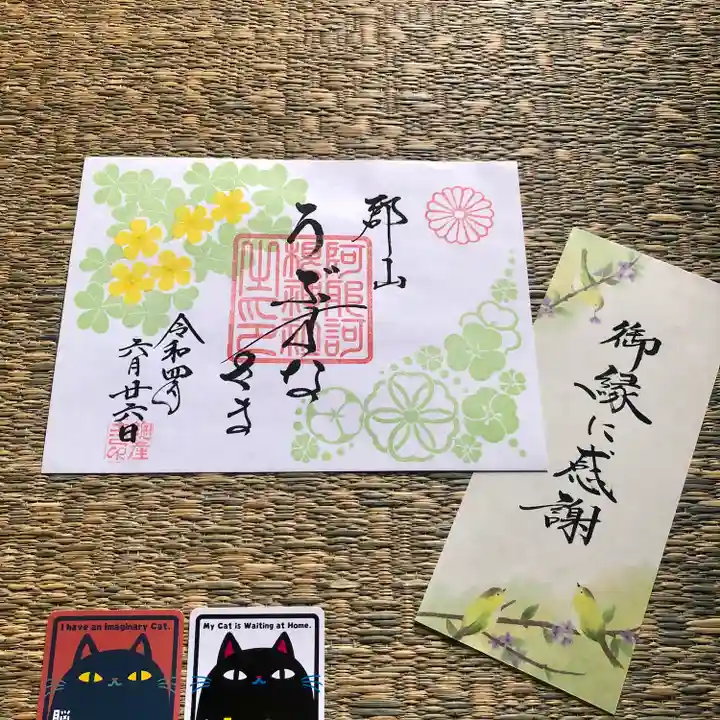 郡山
うぶすな
さま
阿邪訶
根神社
之印
令和四年
六月廿六日
御縁に感謝
I have an Imaginary Cat.
My Cat is Waiting at Home.
脳